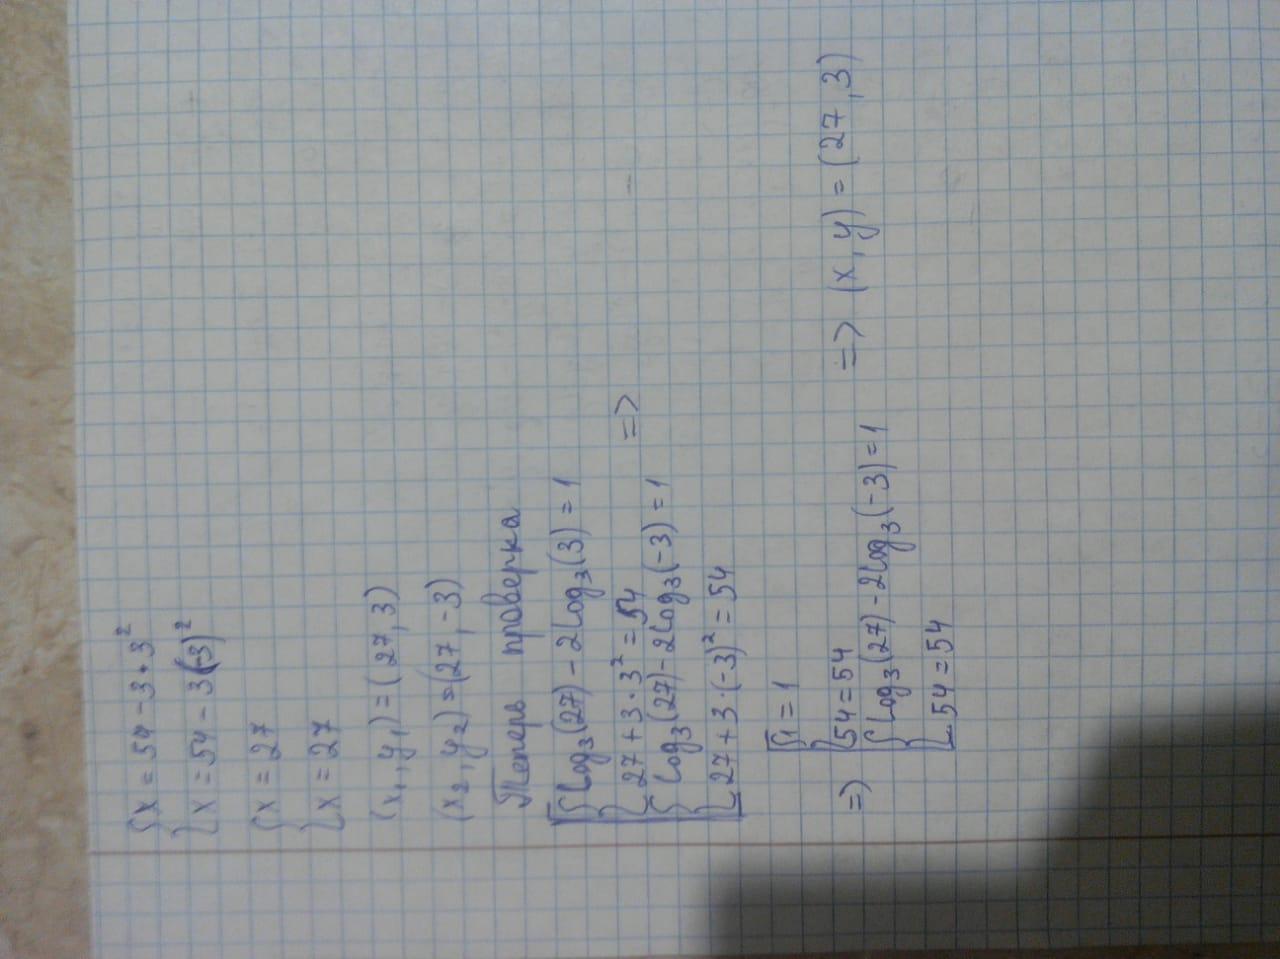 { x = 54 - 3 · 3²
{ x = 54 - 3(-3)²
{ x = 27
{ x = 27
(x₁, y₁) = (27, 3)
(x₂, y₂) = (27, -3)
Теперь проверка
[{ log₃(27) - 2log₃(3) = 1
{ 27 + 3 · 3² = 54 =>
{ log₃(27) - 2log₃(-3) = 1
{ 27 + 3 · (-3)² = 54
[{ 1 = 1
=> { 54 = 54 => (x, y) = (27, 3)
{ log₃(27) - 2log₃(-3) = 1
{ 54 = 54